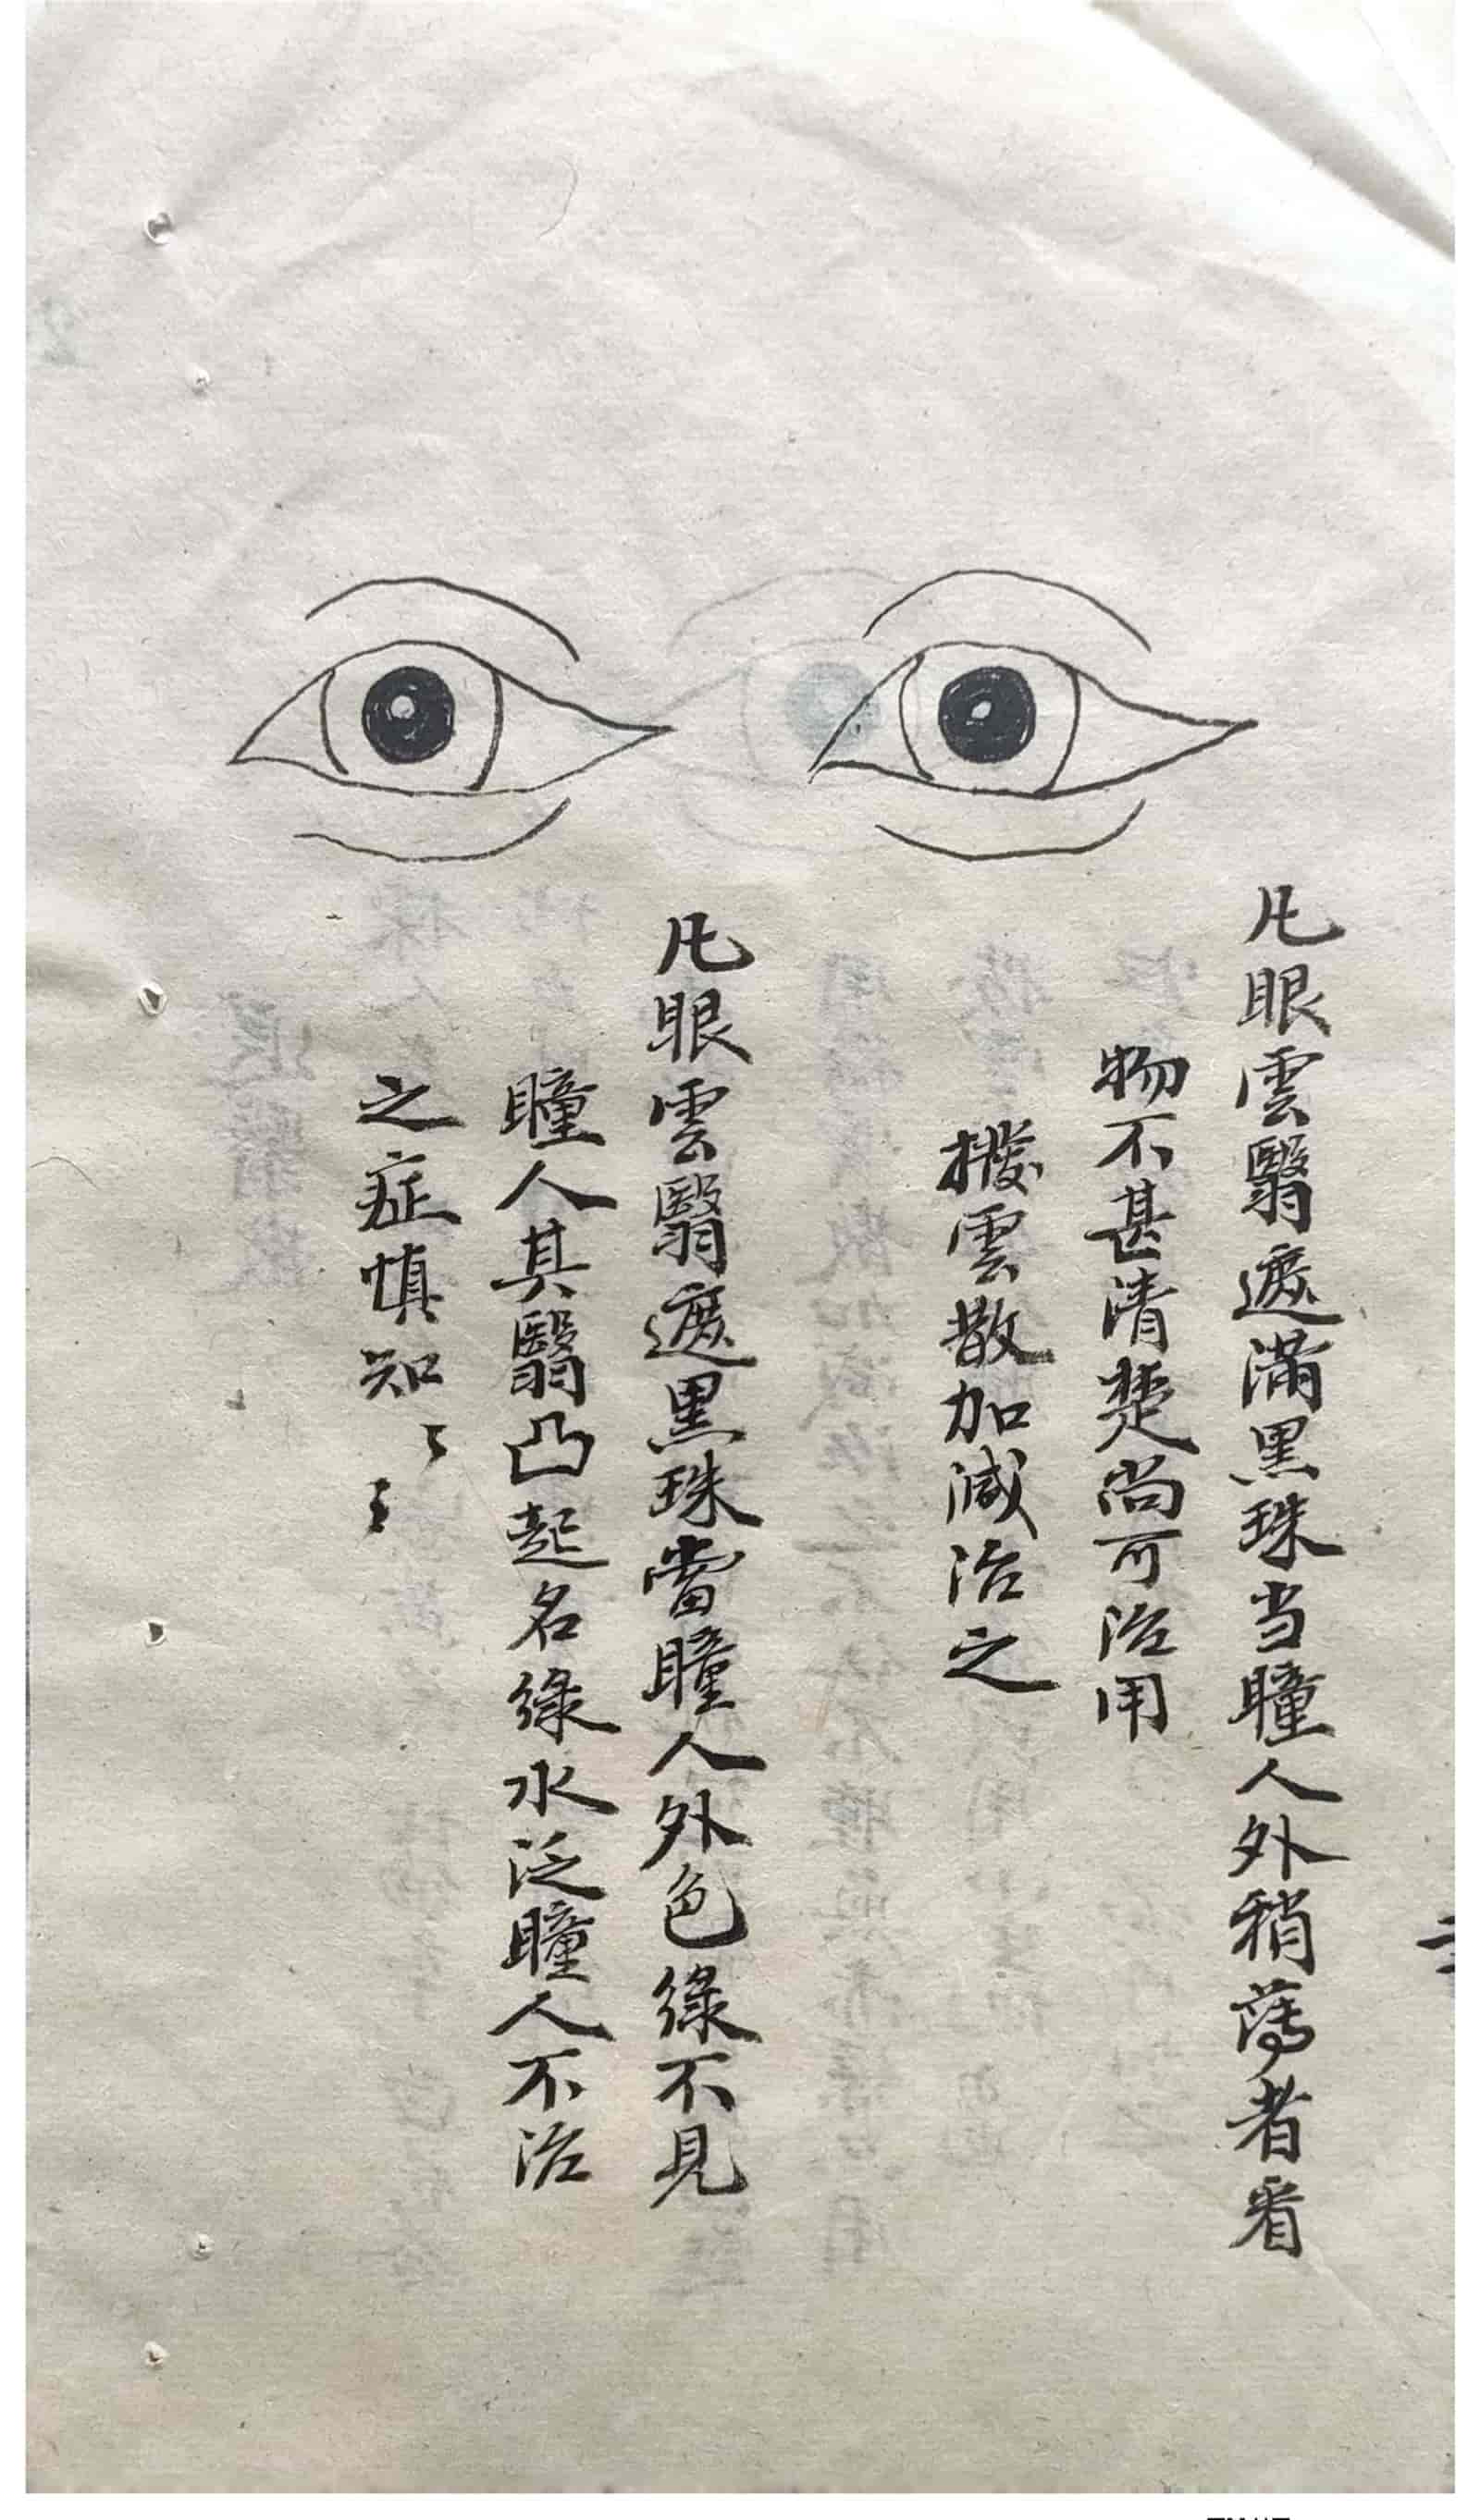 凡眼雲翳遮滿黑珠当瞳人外稍薄者看
物不甚清楚尚可治用
撥雲散加減治之
凡眼雲翳遮黑珠當瞳人外色綠不見
瞳人其翳凸起名綠水泛瞳人不治
之症慎知